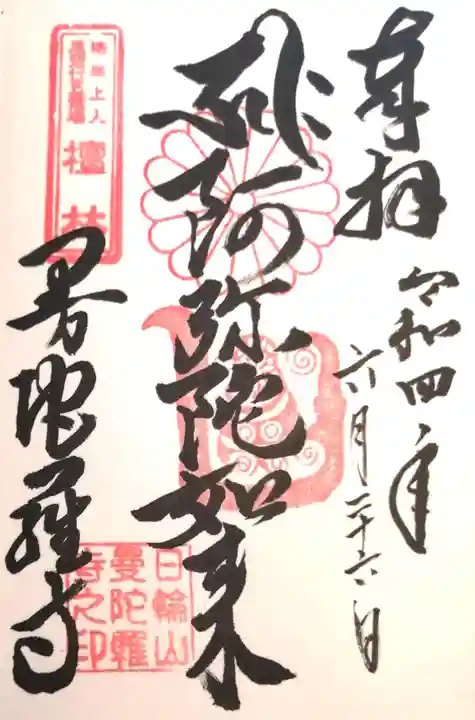 奉拝
令和四年
六月二十六日
阿弥陀如来
曼陀羅寺
徳然上人
檀林
日輪山
曼陀羅
寺之印